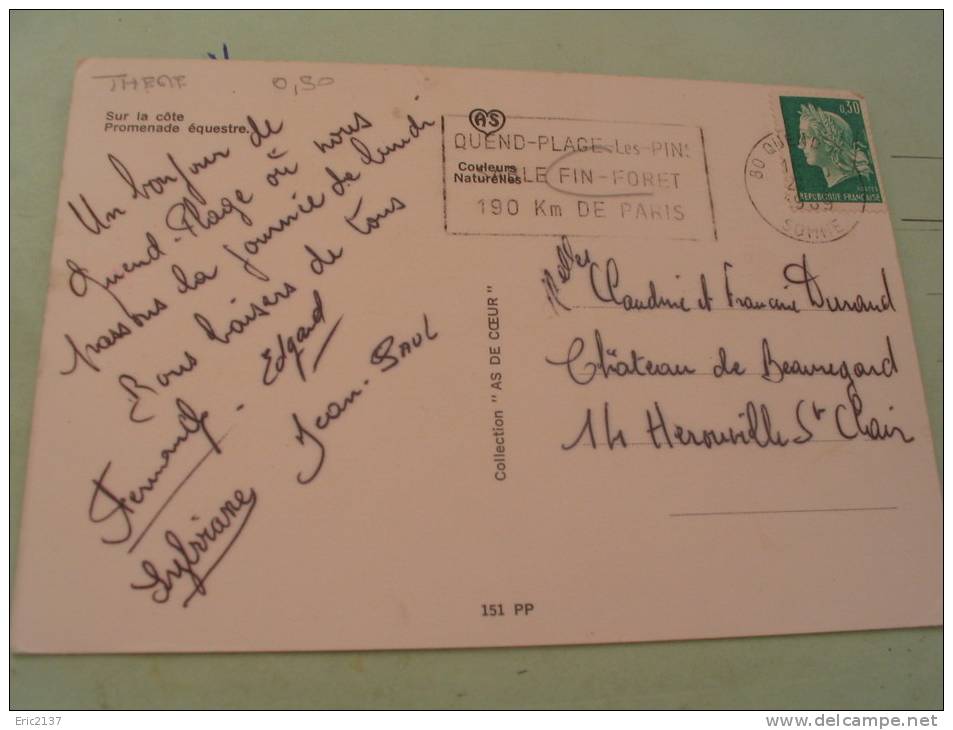 THEME 0,50
Sur la côte
Promenade équestre.
Un bonjour de
Quend-Plage où nous
passons la journée de lundi
Bons baisers de tous
Fernande - Edgard
Sylviane Jean-PAUL
AS
Couleurs
Naturelles
QUEND-PLAGE-Les-PINS
FIN-FORET
190 Km DE PARIS
80 QUEND-
SOMME
0,30
POSTES
REPUBLIQUE FRANCAISE
Collection "AS DE CŒUR"
Melles Claudine et Francine Durand
Château de Beauregard
14 Herouville St Clair
151 PP
Eric2137
www.delcampe.net